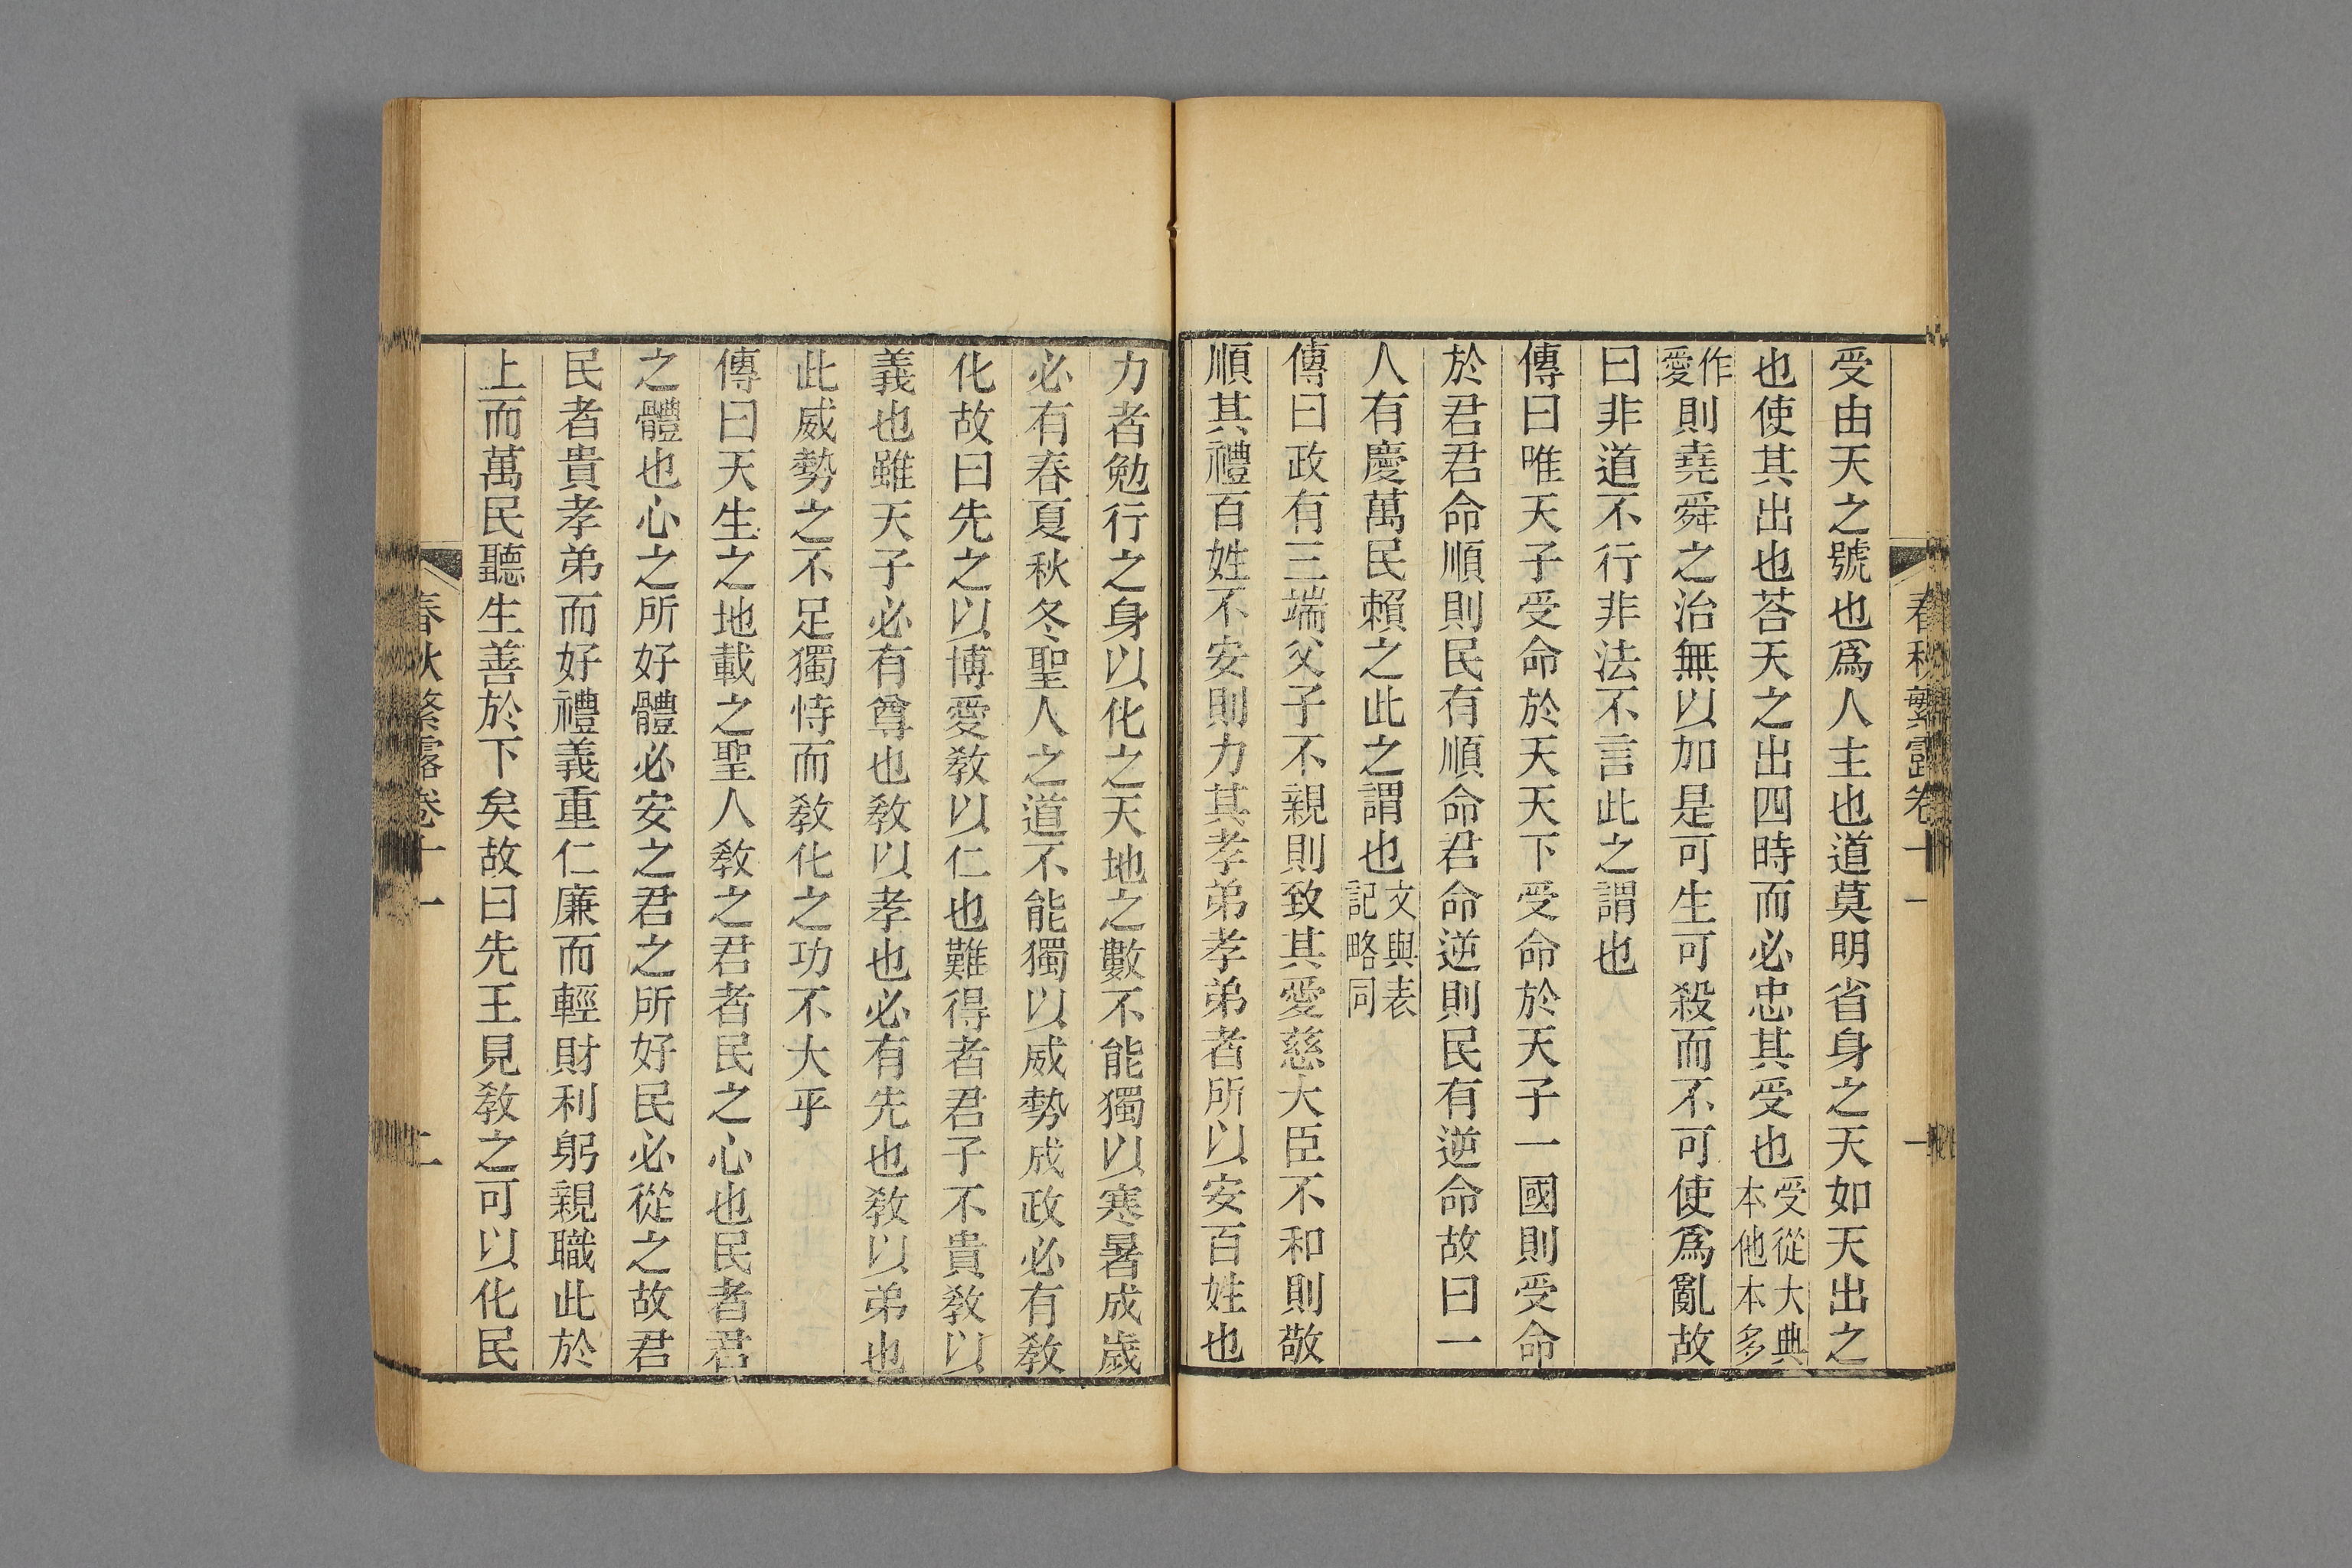 春秋繁露卷十一
一
受由天之號也爲人主也道莫明省身之天如天出之
也使其出也荅天之出四時而必忠其受也受從大典本他本多
作愛則堯舜之治無以加是可生可殺而不可使爲亂故
曰非道不行非法不言此之謂也
傳曰唯天子受命於天天下受命於天子一國則受命
於君君命順則民有順命君命逆則民有逆命故曰一
人有慶萬民賴之此之謂也文與表記略同
傳曰政有三端父子不親則致其愛慈大臣不和則敬
順其禮百姓不安則力其孝弟孝弟者所以安百姓也
力者勉行之身以化之天地之數不能獨以寒暑成歲
必有春夏秋冬聖人之道不能獨以威勢成政必有敎
化故曰先之以博愛敎以仁也難得者君子不貴敎以
義也雖天子必有尊也敎以孝也必有先也敎以弟也
此威勢之不足獨恃而敎化之功不大乎
傳曰天生之地載之聖人敎之君者民之心也民者君
之體也心之所好體必安之君之所好民必從之故君
民者貴孝弟而好禮義重仁廉而輕財利躬親職此於
上而萬民聽生善於下矣故曰先王見敎之可以化民
春秋繁露卷十一
二